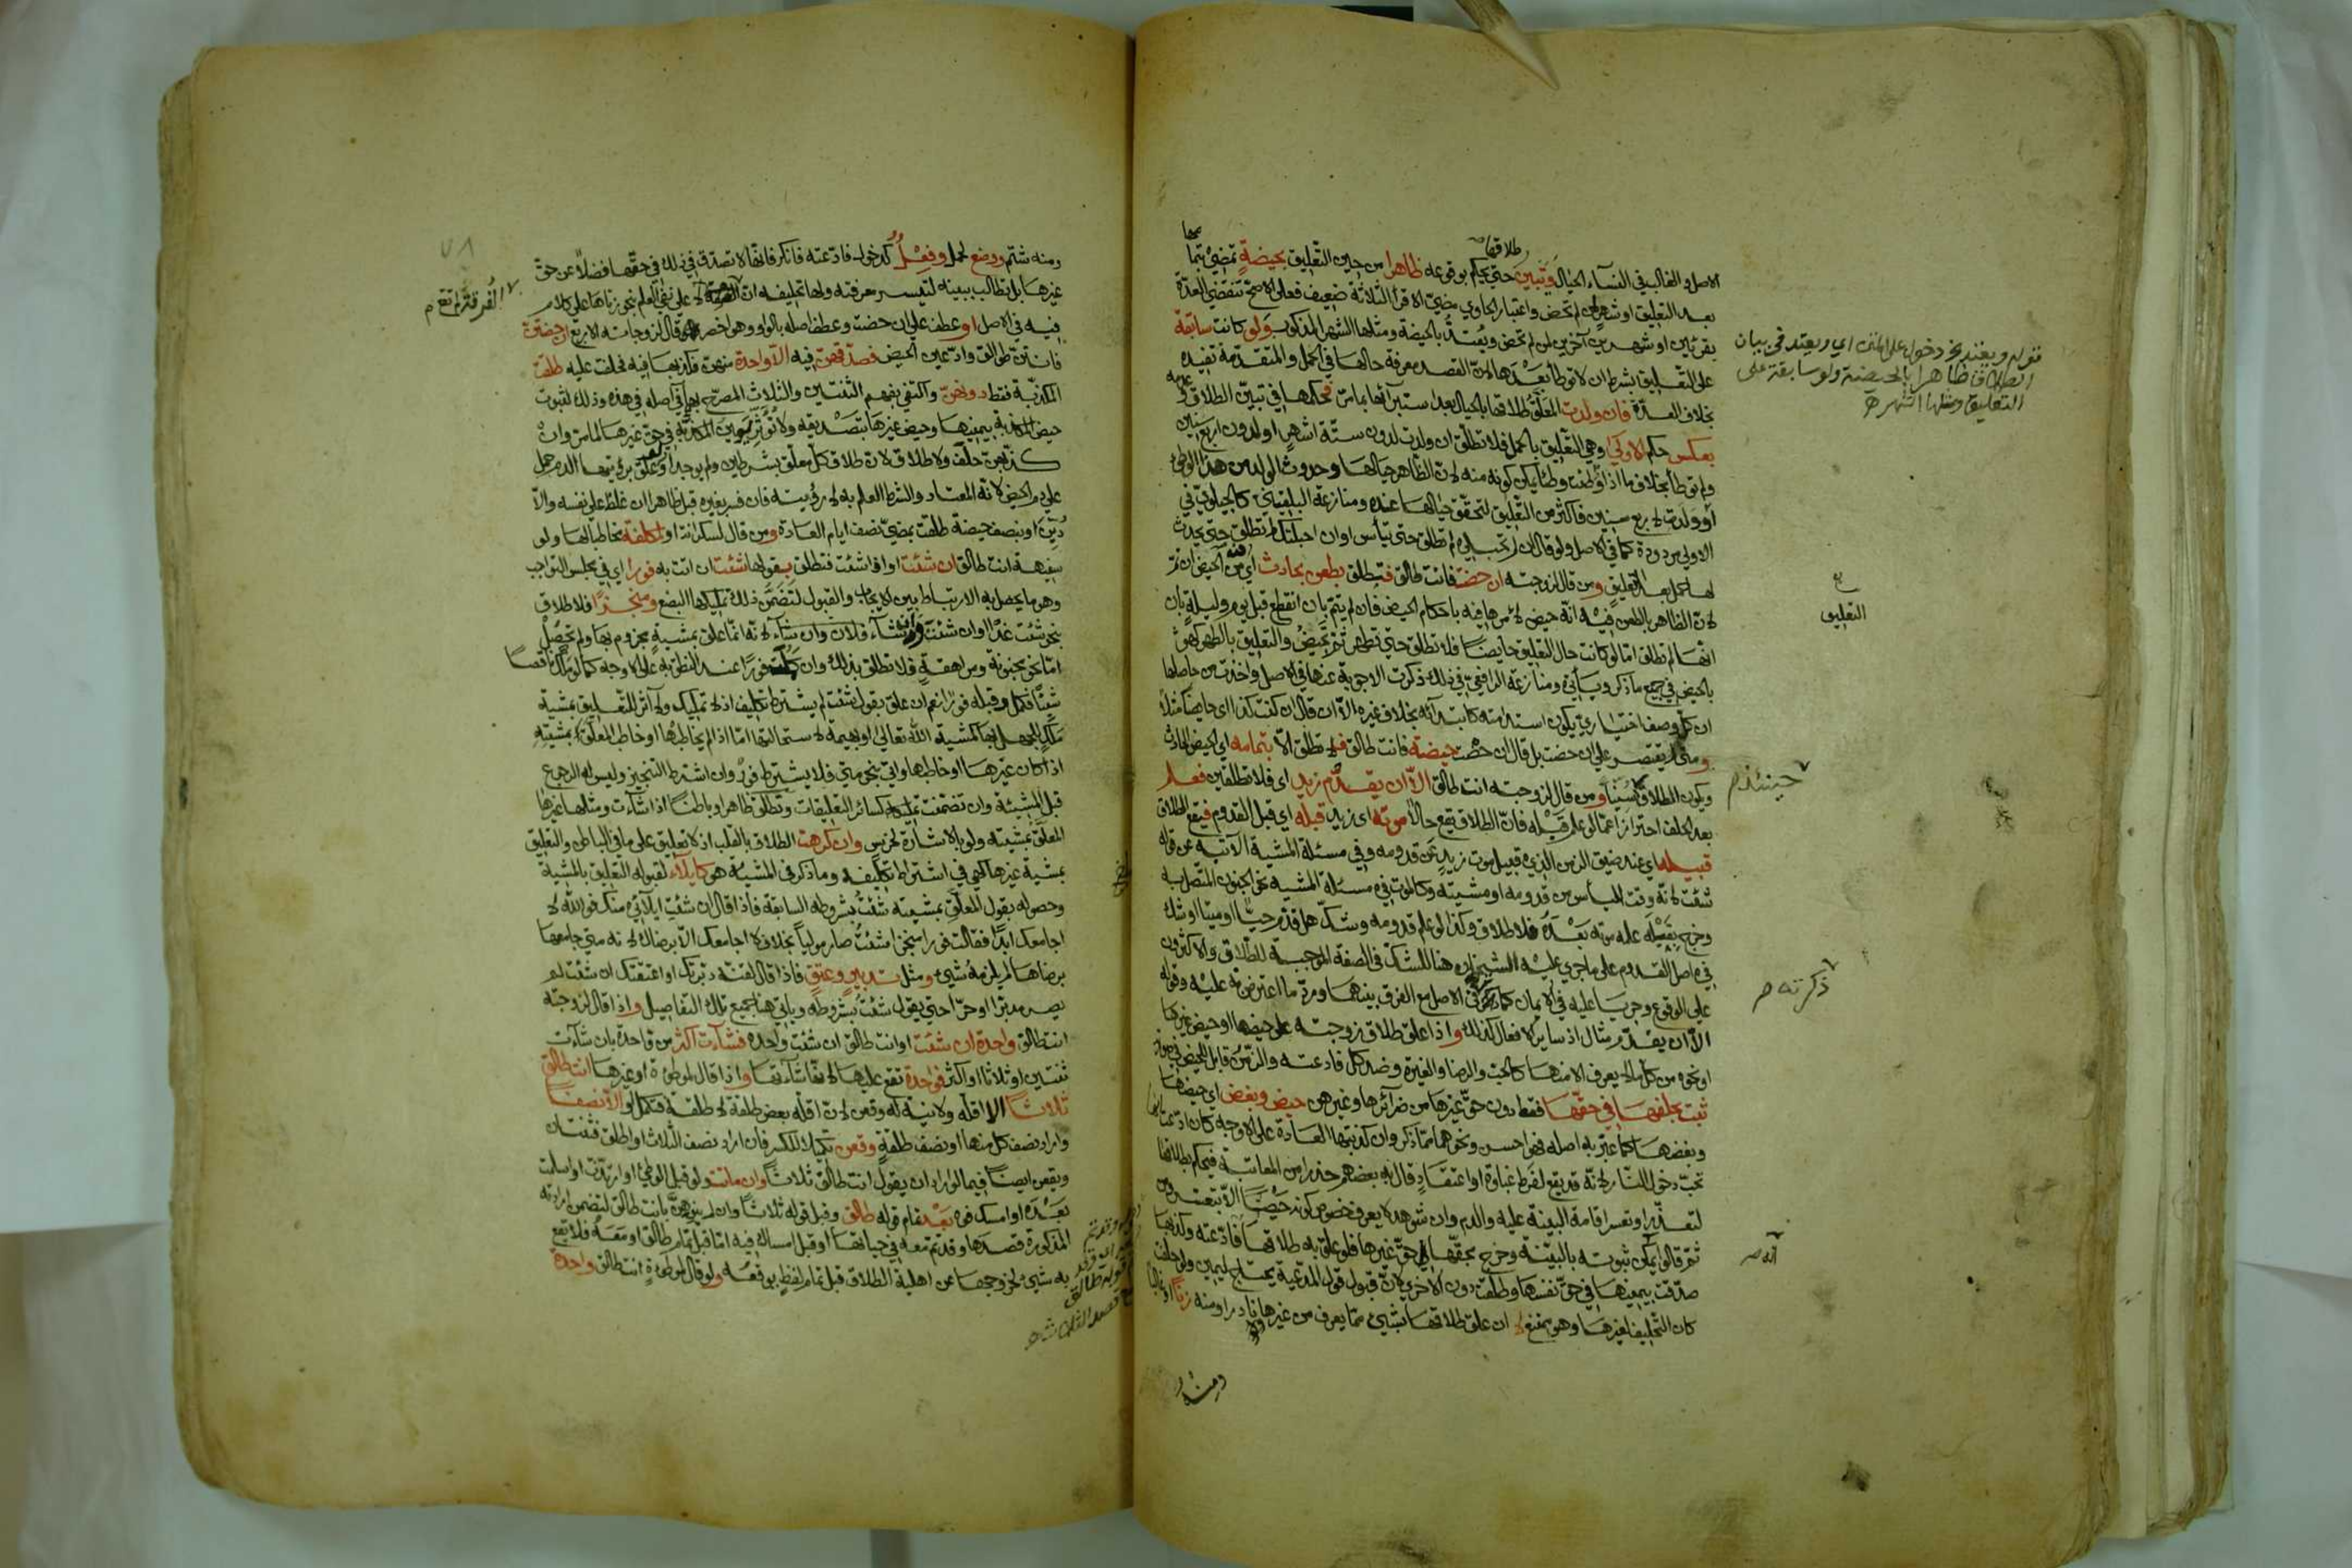 الاصل والغالب في النسآء الحيال وتبين حتى يحكم بوقوعه ظاهرا من حين التعليق بحيضة تمضي بتمامها
طلاقها
بعد التعليق او شهر ان لم تحض واعتبار الحاوي مضي الاقرآء الثلاثة ضعيف فعلى الاصح تنقضي العدة
بقرئين او شهرين آخرين ان لم تحض ويعتد بالحيضة ومثلها الشهر المذكور ولو كانت سابقة
على التعليق بشرط ان لا توطأ بعدها لان القصد معرفة حالها في الحمل والمتقدمة تفيده
بخلاف العدة فان ولدت المعلق طلاقها بالحيال بعد استبرآئها بما مر فحكمها في تبين الطلاق وعدمه
بعكس حكم الاولى وهي التعليق بالحمل فلا تطلق ان ولدت لدون ستة اشهر او لدون اربع سنين
ولم توطأ بخلاف ما اذا وطئت وطئا يمكن كونه منه لان الظاهر حيالها وحدوث الولد من هذا الوطئ
او ولدت لاربع سنين فاكثر من التعليق لتحقق حيالها عنده ومنازعة البلقيني كالجيلوي في
الاولى مردودة كما في الاصل ولو قال ان لم تحبلي لم تطلق حتى تيأس او ان احبلتك لم تطلق حتى يحدث
لها حمل بعد التعليق ومن قال لزوجته ان حضت فانت طالق فتطلق بطعن بحادث اي في الحيض ان تم
لان الظاهر بالطعن فيه انه حيض لامرها فيه باحكام الحيض فان لم يتم بان انقطع قبل يوم وليلة بان
انها لم تطلق اما لو كانت حال التعليق حايضا فلا تطلق حتى تطهر ثم تحيض والتعليق بالطهر كهو
بالحيض في جميع ما ذكر ويأتي ومنازعة الرافعي في ذلك ذكرت الاجوبة عنها في الاصل واخذت من حاصلها
ان كل وصف اختياري يكون استدامته كابتدآئه بخلاف غيره الا ان قال ان كنت كذا اي حايضا مثلا
ومتى لم يقتصر على ان حضت بل قال ان حضت حيضة فانت طالق فلا تطلق الا بتمامه اي الحيض الحادث
ويكون الطلاق سنيا ومن قال لزوجته انت طالق الا ان يقدم زيد اي فلا تطلقين فعلم
بعد الحلف احترازا عما لو علم قبله فان الطلاق يقع حالا موته اي زيد قبله اي قبل القدوم فيقع الطلاق
قبيله اي عند ضيق الزمن الذي قبيل موت زيد عن قدومه وفي مسئلة المشية الاتية عن قوله
شئت لانه وقت اليأس من قدومه او مشيته وكالموت في مسئلة المشية نحو الجنون المتصل به
وخرج بقبله علم موته بعده فلا طلاق وكذا لو علم قدومه وشك هل قدم حيا او ميتا او شك
في اصل القدوم على ما جرى عليه الشيخان هنا للشك في الصفة الموجبة للطلاق والاكثرون
على الوقوع وجريا عليه في الايمان كما في الاصل مع الفرق بينهما ورد ما اعترض به عليه وقوله
الا ان يقدم مثال اذ ساير الافعال كذلك واذا علق طلاق زوجته على حيضها او حيض غيرها
او نحوه من كل ما لا يعرف الا منها كالحب والرضا والغيرة وضد كل فادعته والزمن قابل للحيض في صورته
ثبت بحلفها في حقها فقط دون حق غيرها من ضرآئرها وغيرهن حيض وبغض اي حيضها
وبغضها كما عبر به اصله فهو احسن ونحوهما مما ذكر وان كذبتها العادة على الاوجه كان ادعت انها
تحب دخول النار لانه قد يقع لفرط غباوة او اعتقاد قال به بعضهم حذرا من المعاتبة فيحكم بطلاقها
لتعذر او تعسر اقامة البينة عليه والدم وان شوهد لا يعرف خصوص كونه حيضا الا بتعسر ومن
ثم قالوا يمكن ثبوته بالبينة وخرج بحقها حق غيرها فلو علق به طلاقها فادعته وكذبها
صدقت بيمينها في حق نفسها وطلقت دون الاخرى لان قبول قول المدعية يحتاج ليمين ولو حلفت
كان التحليف لغيرها وهو ممتنع لا ان علق طلاقها بشئ مما يعرف من غيرها نادرا ومنه زنا او غالبا
ومنه
قوله ويعتد نحو دخول على المتن اي ويعتد في بيان
الطلاق ظاهرا بالحيضة ولو سابقة على
التعليق ومثلها الشهر
التعليق
حينئذ م
ذكرته صر
انه صر
ومنه شتم ووضع لحمل وفعل كدخول فادعته فانكر فانها لا تصدق في ذلك في حقها فضلا عن حق
غيرها بل تطالب ببينة لتيسر معرفته ولها تحليفه انه لا على نفي العلم بنحو زناها على كلام
فيه في الاصل او عطف على ان حضت وعطف اصله بالواو وهو اخصر قال لزوجاته الاربع ان حضتن
فانتن طوالق وادعين الحيض فصدقهن فيه الا واحدة منهن فكذبها فيه فحلفت عليه طلقت
المكذبة فقط دونهن واكتفى بفهم الثنتين والثلاث المصرح بهما في اصله في هذه وذلك لثبوت
حيض المكذبة بيمينها وحيض غيرها بتصديقه ولا تؤثر يمين المكذبة في حق غيرها لما مر وان
كذبهن حلف ولا طلاق لان طلاق كل معلق بشرطين ولم يوجدا ولو علق برؤيتها الدم حمل
على دم الحيض لانه المعتاد والشرط العلم به لا رؤيته فان فسر بغيره قبل ظاهرا ان غلظ على نفسه والا
دين او بنصف حيضة طلقت بمضي نصف ايام العادة ومن قال لسكرانة او لمكلفة مخاطبا لها ولو
سفيهة انت طالق ان شئت او اذا شئت فتطلق بقولها شئت ان اتت به فورا اي في مجلس التواجب
وهو ما يحصل به الارتباط بين الايجاب والقبول لتضمن ذلك تمليكها البضع ومنجزا فلا طلاق
بنحو شئت غدا او ان شئت وان شآء فلان وان شآء لانه انما علق بمشية مجزوم بها ولم تحصل
اما نحو مجنونة ومراهقة فلا تطلق بذلك وان كملت فورا عند النطق به على الاوجه كما لو ملك ناقصا
شيئا فكمل وقبله فورا نعم ان علق بقول شئت لم يشترط تكليف اذ لا تمليك ولا اثر للتعليق بمشية
ملك للجهل بها كمشية الله تعالى او بهيمة لاستحالتها اما اذا لم يخاطبها او خاطب المعلق بمشيته
اذا كان غيرها او خاطبها واتى بنحو متى فلا يشترط فور وان اشترط التنجيز وليس له الرجوع
قبل المشيئة وان تضمنت تمليكا كسائر التعليقات وتطلق ظاهرا وباطنا اذا شآءت ومثلها غيرها
المعلق بمشيته ولو بالاشارة لخرس وان كرهت الطلاق بالقلب اذ لا تعليق على ما في الباطن والتعليق
بمشية غيرها كهي في اشتراط تكليفه وما ذكر في المشيئة هو كايلآء لقبوله التعليق بالمشية
وحصوله بقول المعلق بمشيته شئت بشروطه السابقة فاذا قال ان شئت ايلآئي منك فوالله لا
اجامعك ابدا فقالت فورا منجزا شئت صار موليا بخلاف لا اجامعك الا برضاك لانه متى جامعها
برضاها لم يلزمه شئ ومثل تدبير وعتق فاذا قال لقنه دبرتك او اعتقتك ان شئت لم
يصر مدبرا او حرا حتى يقول شئت بشروطه ويأتي هنا جميع تلك التفاصيل واذا قال لزوجته
انت طالق واحدة ان شئت او انت طالق ان شئت واحدة فشآءت اكثر من واحدة بان شآءت
ثنتين او ثلاثا او اكثر فواحدة تقع عليها لانها شآءتها واذا قال لموطوءة او غيرها انت طالق
ثلاثا الا اقله ولا نية له وقعن لان اقله بعض طلقة لا طلقة فتكمل او الا نصفا
واراد نصف كل منها او نصف طلقة وقعن تكميلا للكسر فان اراد نصف الثلاث او اطلق فثنتان
ويقعن ايضا فيما لو اراد ان يقول انت طالق ثلاثا وان ماتت ولو قبل الوطئ او ارتدت او اسلمت
بعده او امسك فوه بعد تمام قوله طالق وقبل قوله ثلاثا وان لم ينوهن بانت طالق لتضمن ارادته
المذكورة قصدها وقد تم معه في حياتها او قبل امساك فيه اما قبل تمام طالق او معه فلا يقع
به شئ لخروجها عن اهلية الطلاق قبل تمام لفظ يوقعه ولو قال لموطوءة انت طالق واحدة
٧٨